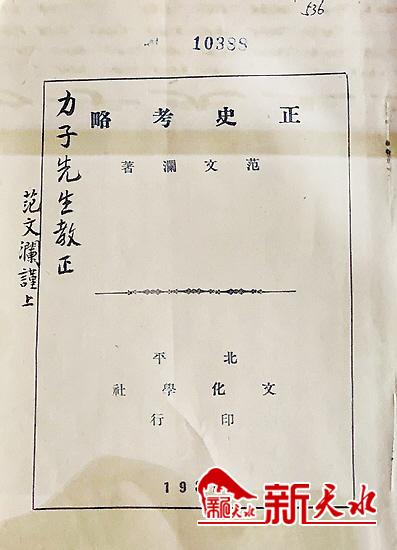 536
10388
正史考略
范文瀾著
力子先生教正
范文瀾謹上
北平
文化學社
印行
19
新天水
新天水